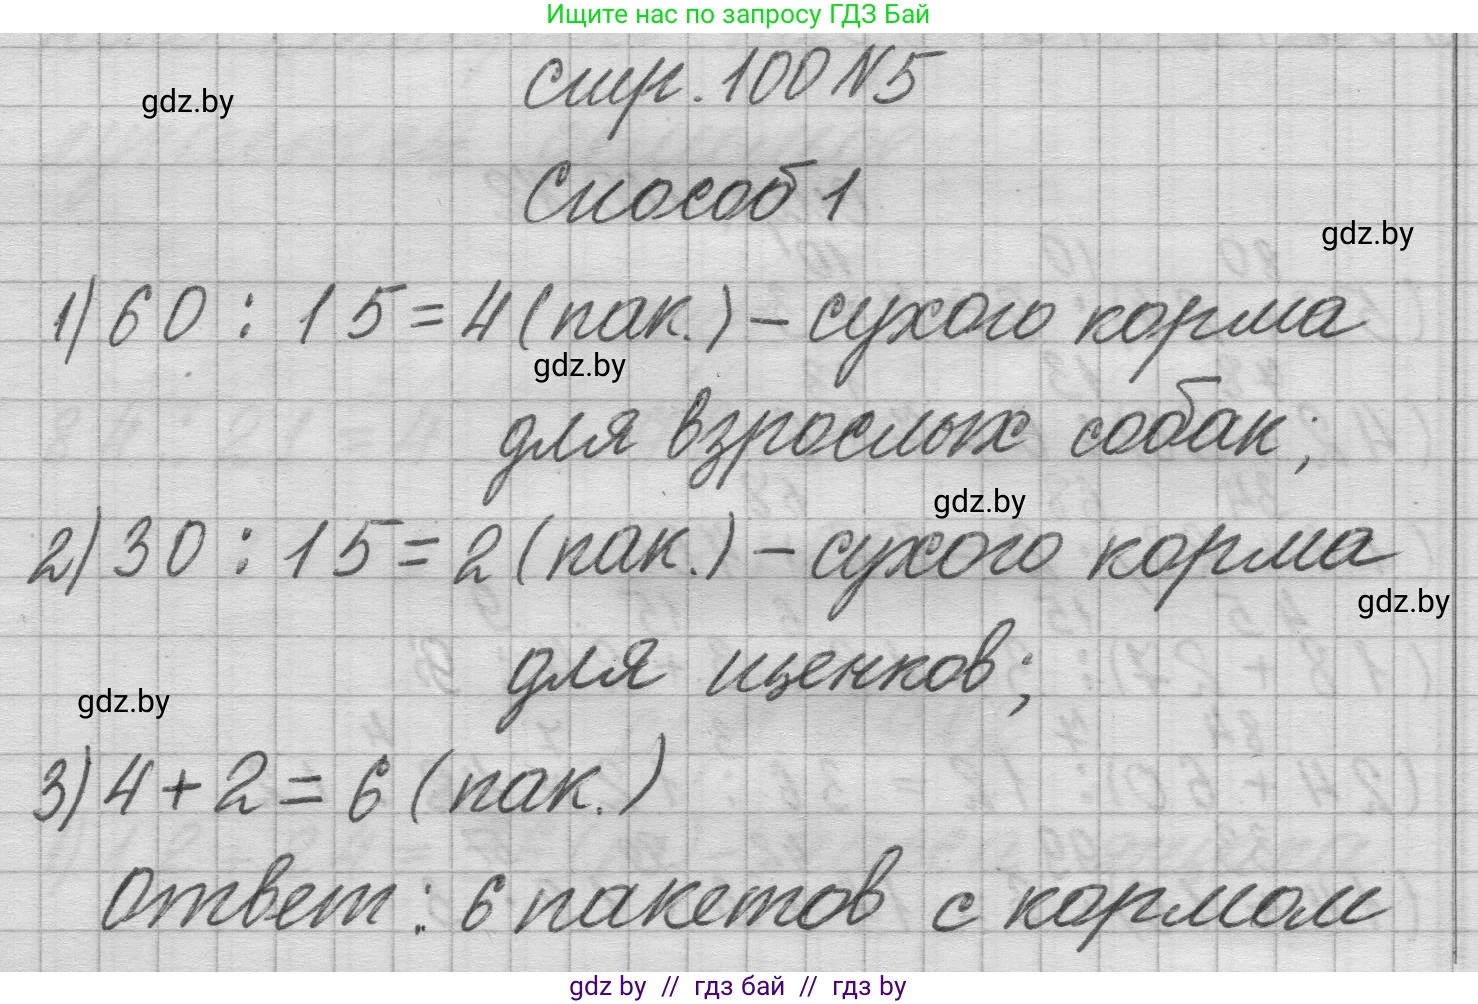 Ищите нас по запросу ГДЗ Бай
стр. 100 №5
gdz.by
Способ 1
gdz.by
1) 60 : 15 = 4 (пак.) – сухого корма
gdz.by
для взрослых собак;
gdz.by
2) 30 : 15 = 2 (пак.) – сухого корма
gdz.by
для щенков;
gdz.by
3) 4 + 2 = 6 (пак.)
Ответ: 6 пакетов с кормом
gdz by // гдз бай // гдз by